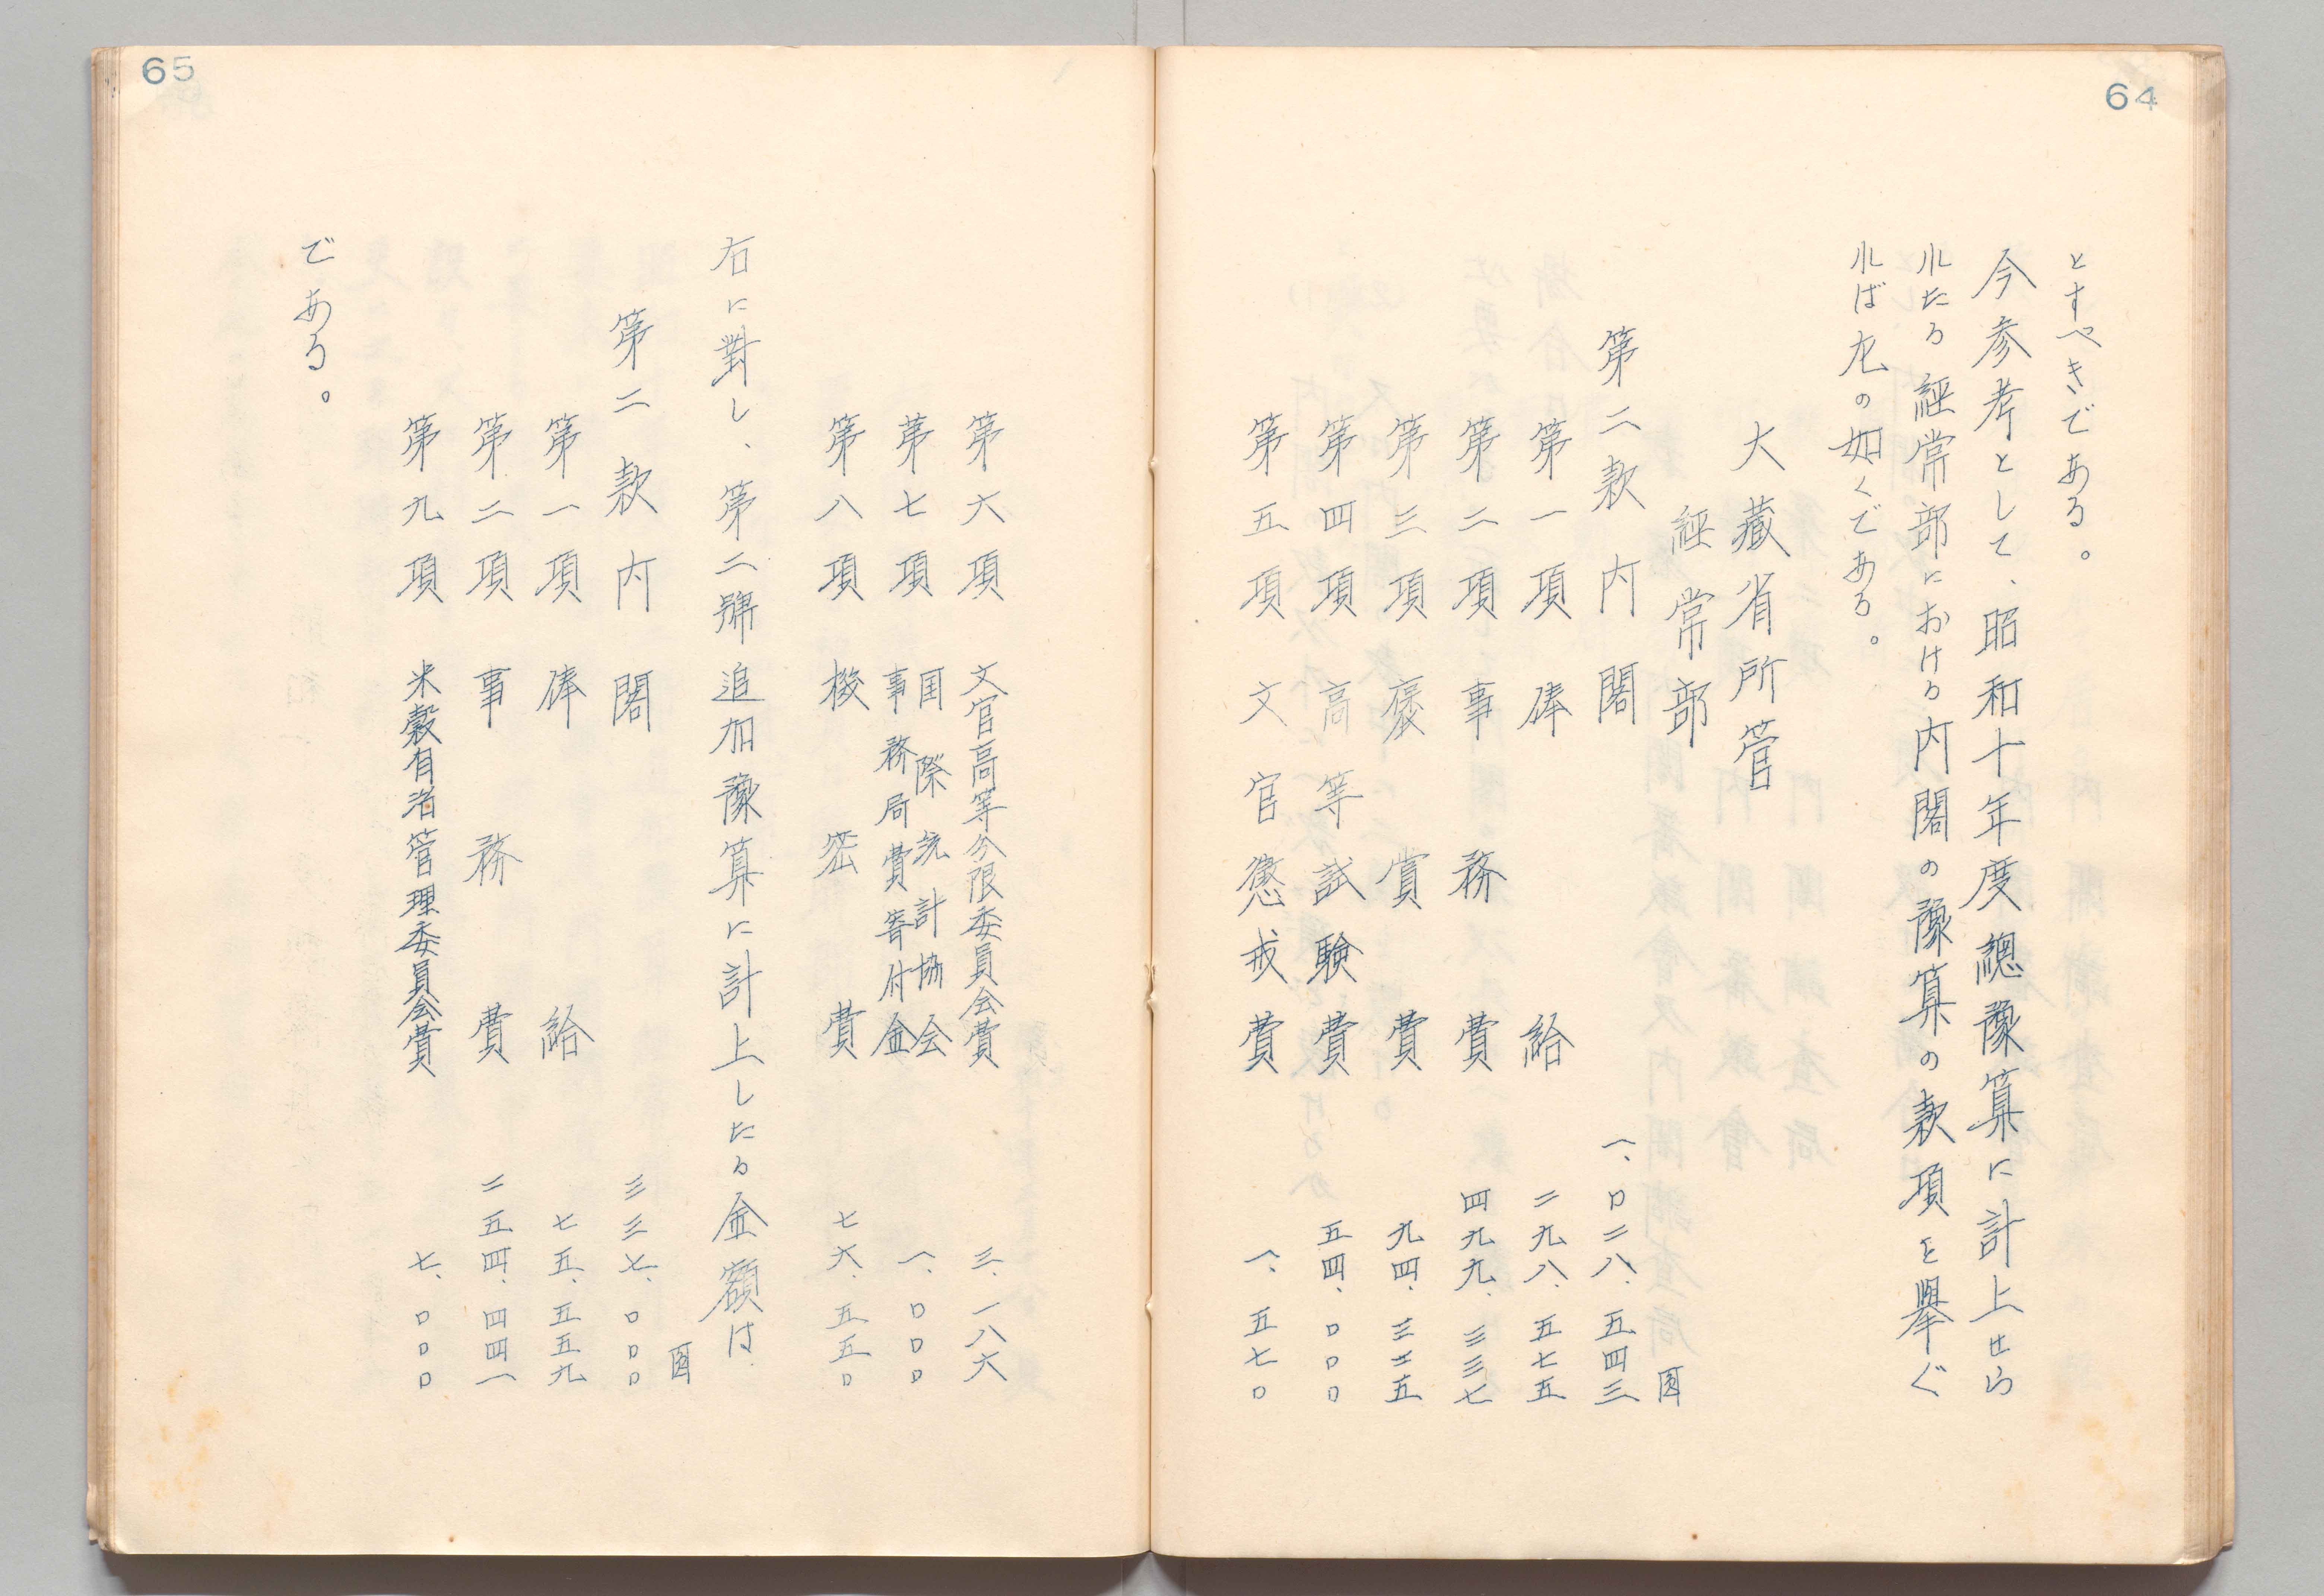 64
とすべきである。
今参考として、昭和十年度總豫算に計上せら
れたる経常部における内閣の豫算の款項を擧ぐ
れば左の如くである。
大藏省所管
経常部
圓
第二款 内閣 一、〇二八、五四三
第一項 俸給 二九八、五七五
第二項 事務費 四九九、三三七
第三項 褒賞費 九四、三二五
第四項 高等試験費 五四、〇〇〇
第五項 文官懲戒費 一、五七〇
65
第六項 文官高等分限委員会費 三、一八六
第七項 国際統計協会
事務局費寄付金 一、〇〇〇
第八項 機密費 七六、五五〇
右に對し、第二號追加豫算に計上したる金額は
圓
第二款 内閣 三三七、〇〇〇
第一項 俸給 七五、五五九
第二項 事務費 二五四、四四一
第九項 米穀自治管理委員会費 七、〇〇〇
である。